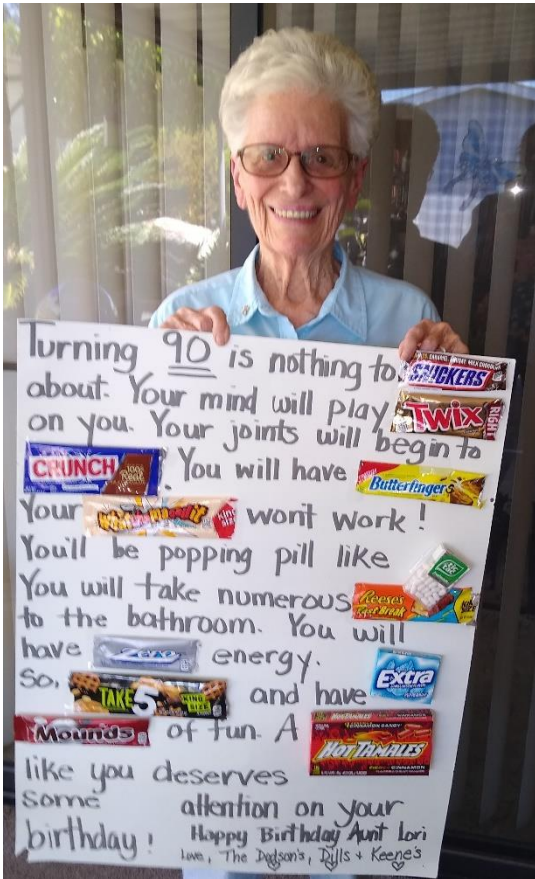 Turning 90 is nothing to SNICKERS
about. Your mind will play TWIX RIGHT
on you. Your joints will begin to
CRUNCH. You will have Butterfinger.
Your Whatchamacallit KING SIZE wont work!
You'll be popping pill like tic tac
You will take numerous Reese's Fast Break
to the bathroom. You will
have Zero energy.
So, TAKE 5 KING SIZE and have Extra
Mounds of fun. A HOT TAMALES
like you deserves
some attention on your
birthday! Happy Birthday Aunt Lori
Love, The Dodson's, Dylls + Keene's